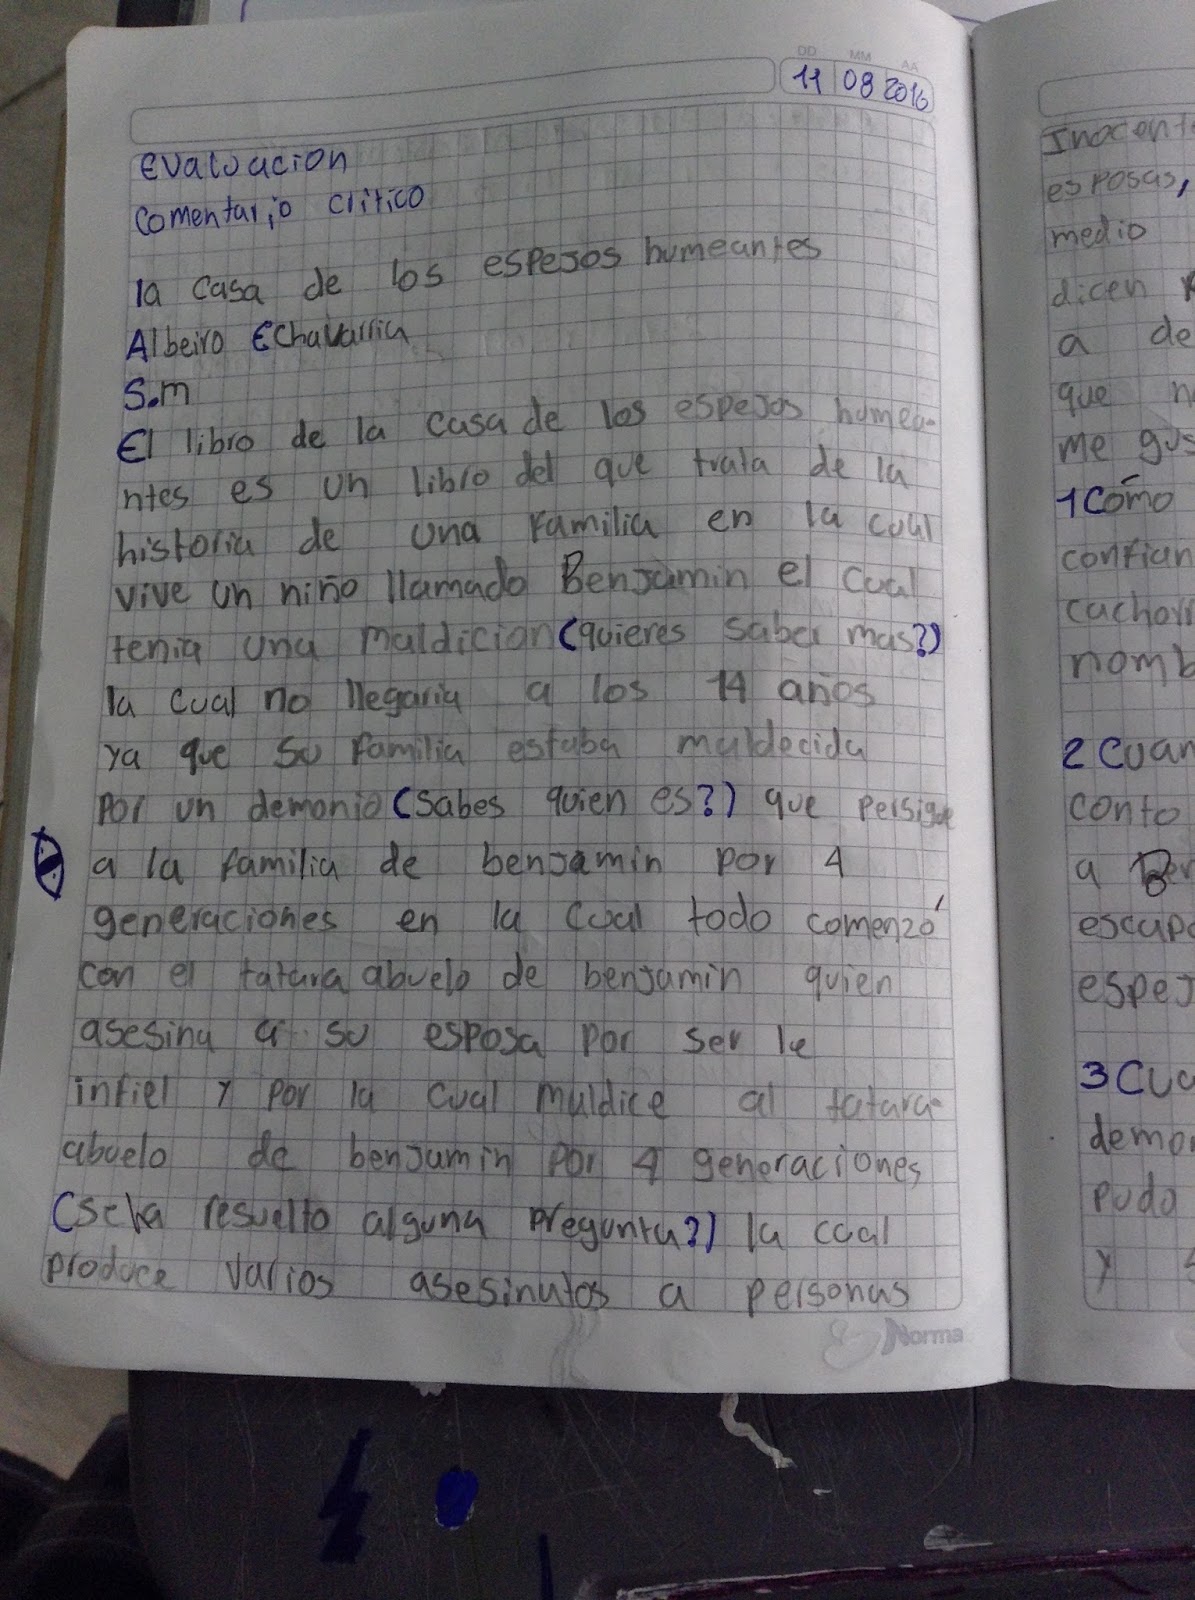 DD MM AA
11 08 2016
evaluacion
Comentario critico
la casa de los espejos humeantes
Albeiro Echavarria
S.m
El libro de la casa de los espejos humea-
ntes es un libro del que trata de la
historia de una familia en la cual
vive un niño llamado Benjamin el cual
tenia una maldicion (quieres saber mas?)
la cual no llegaria a los 14 años
ya que su familia estaba maldecida
por un demonio (sabes quien es?) que persigue
a la familia de benjamin por 4
generaciones en la cual todo comenzó
con el tatara abuelo de benjamin quien
asesina a su esposa por ser le
infiel y por la cual maldice al tatara-
abuelo de benjamin por 4 generaciones
(se ha resuelto alguna pregunta?) la cual
produce varios asesinatos a personas
Norma
Inocent
esposas,
medio
dicen
a de
que n
me gus
1 Cómo
confian
cachorr
nomb
2 Cuan
conto
a Ber
escapo
espej
3 Cua
demon
pudo
y